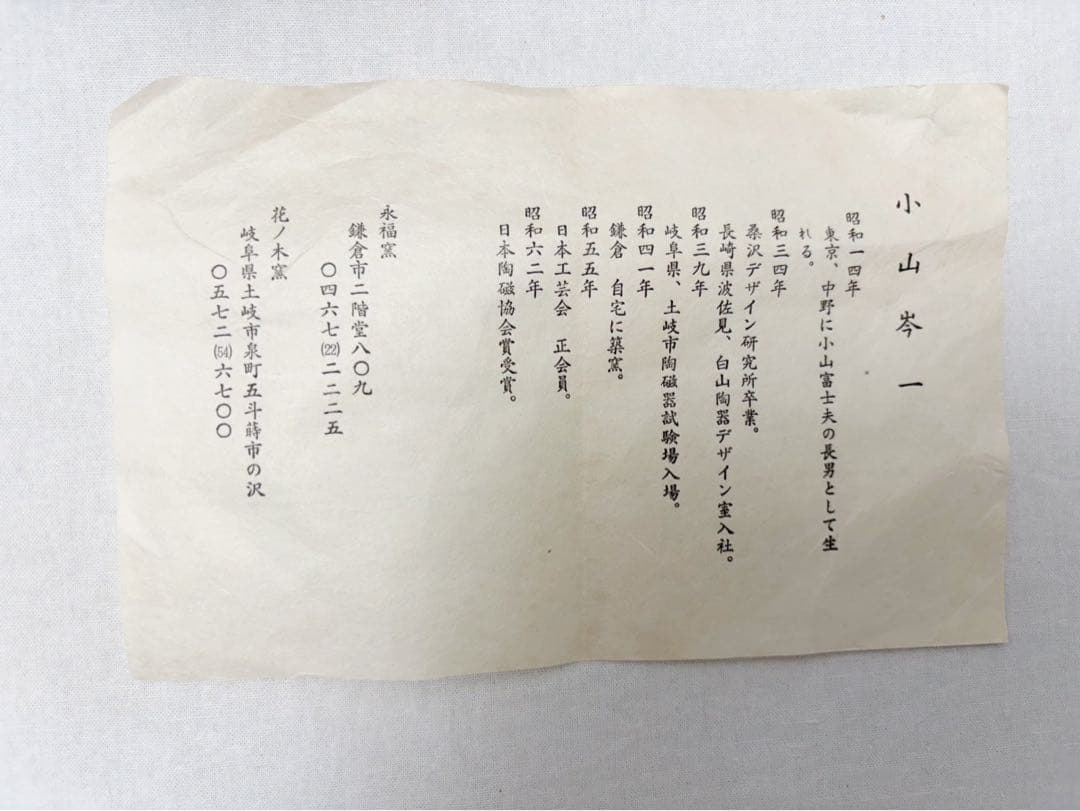 小山岑一
昭和一四年
東京、中野に小山富士夫の長男として生
れる。
昭和三四年
桑沢デザイン研究所卒業。
長崎県波佐見、白山陶器デザイン室入社。
昭和三九年
岐阜県、土岐市陶磁器試験場入場。
昭和四一年
鎌倉　自宅に築窯。
昭和五五年
日本工芸会　正会員。
昭和六二年
日本陶磁協会賞受賞。
永福窯
鎌倉市二階堂八〇九
〇四六七(22)二二二五
花ノ木窯
岐阜県土岐市泉町五斗蒔市の沢
〇五七二(54)六七〇〇